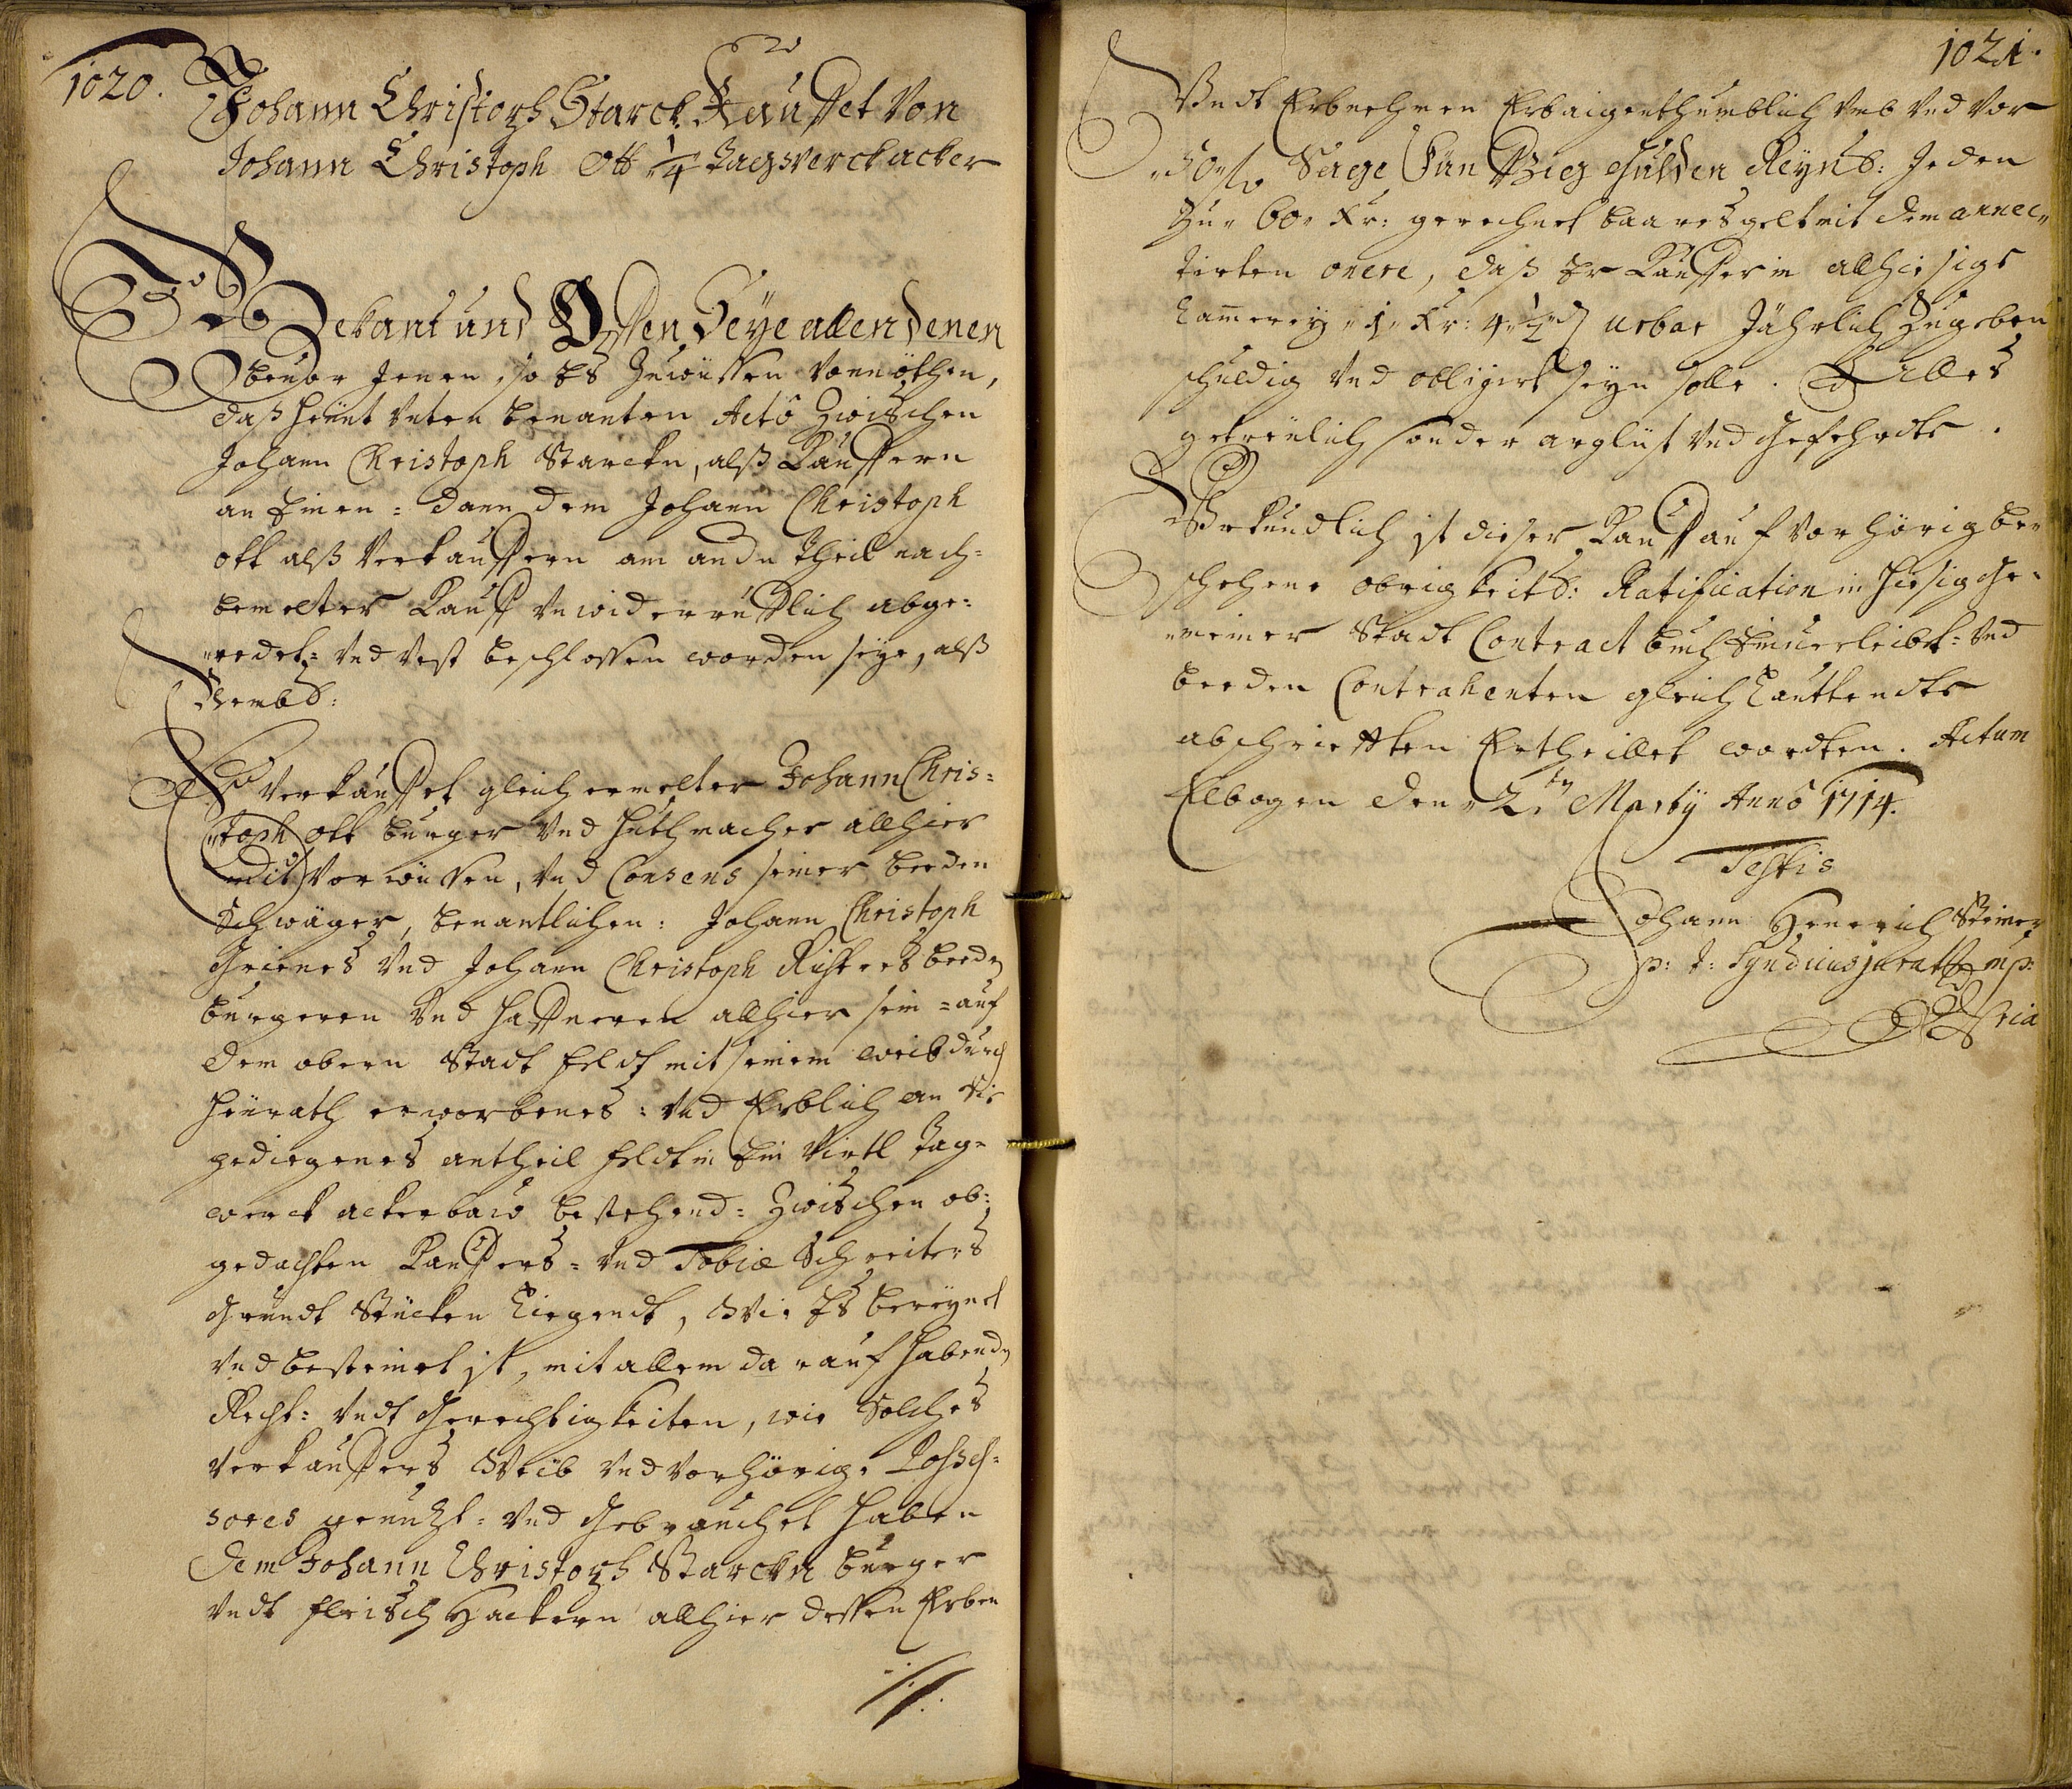 1020.
Johann Christoph Starck Kauffet Von
Johann Christoph Ott ¼ Tagwerckacker
Bekant und Offen Seye allen denen
bevor Jenen, so Es Zuwüssen Vonnöthen,
daß heünt Unten benanten Actô Zwischen
Johann Christoph Starckn, alß Kauffern
an Einen = dann dem Johann Christoph
ott alß Verkauffern am andn theil nach=
bemelter Kauff Unwiderrufflich abge=
redet= Und Vest beschlossen worden seye, alß
Nembl:
Es Verkauffet gleich ermelter Johann Chris=
toph ott burger Und Huthmacher allhier
mit Vorwüssen, Und Consens seiner beeden
Schwäger, benantlichen: Johann Christoph
Grienes Und Johann Christoph Risters beedn
burgeren Und Haffneren allhier sein = auf
dem obern Stadt feldt mit seinem weib durch
Heürath erworbenes: Und Erblich an Sie
gediegenes antheil feldt in Ein Virtl Tag=
werck ackerbau bestehend = Zwischen ob=
gedachten Kauffers = Und Tobiæ Schreiters
Grundt Stücken Liegendt, Wie Es bereynet
Und besteinet ist, mit allem darauf habendn
Recht= Undt Gerechtigkeiten, wie Solches
Verkauffers Weib Und Vorhörige Posses=
sores genutzt= Und Gebrauchet haben
dem Johann Christoph Starckn burger
Undt fleisch Hackern allhier dessen Erben
1021.
Undt Erbnehmen Erbaigenthumblich Umb Und Vor
50 fl. Sage Fünffzig Gulden Reynl: Jeden
Zu 60 Xr: gerechnet baares gelt mit dem annec=
tirten onere, daß Er Kauffer in allhiesige
Cammerey 1 Xr: 4 ½ urbar Jährlich Zugeben
schuldig Und obligirt seyn solle. Alles
getreülich sonder arglist Und Gefehrdte.
Uhrkundlich ist dieser Kauff auf Vorhörig be=
schehene obrigkeitl: Ratification in hiesig Ge=
meiner Stadt Contract buch Einverleibt= Und
beeden Contrahenten gleich Lauttendte
abschriefften Ertheillet wordten. Actum
Elbogen den 2.ten Marty Annô 1714.
Testis
Johann Henerich Steiner
p: t: Syndicus jurat mp:
pria